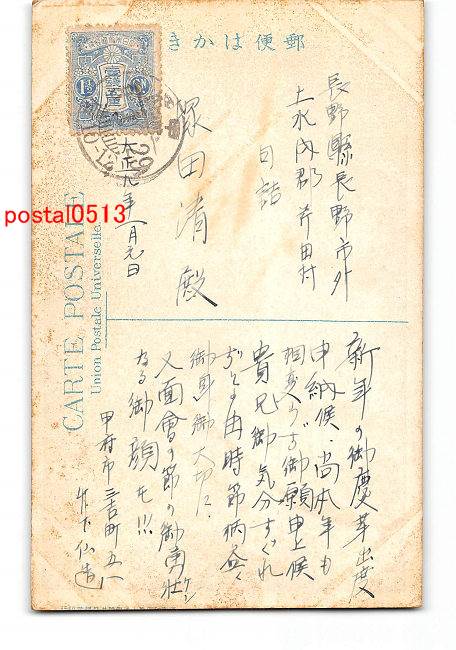 郵便はかき
壹錢五厘
長野縣長野市外
上水内郡芹田村
日詰
塚田清殿
大正九年一月元日
CARTE POSTALE
Union Postale Universelle
postal0513
新年の御慶芽出度
申納候、尚本年も
相変らず御願申上候
貴兄御気分すぐれ
ずとの由時節柄益々
御身御大切に
又面會の節の御壮
なる御顔を!!!
甲府市三吉町五八
竹下仙造